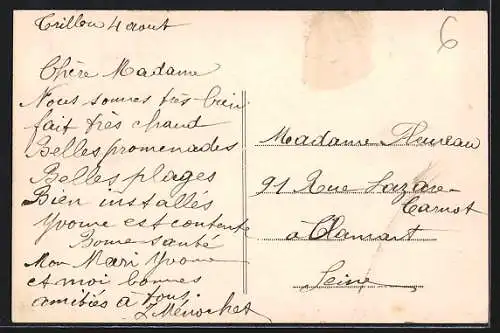 Trillou 4 aout
Chère Madame
Nous sommes très bien
fait très chaud
Belles promenades
Belles plages
Bien installés
Yvonne est contente
Bonne santé
Mon Mari Yvonne
et moi bonnes
amitiés à tous
Z Ménochet
6
Madame Fleureau
91 Rue Lazare
Carnot
à Clamart
Seine